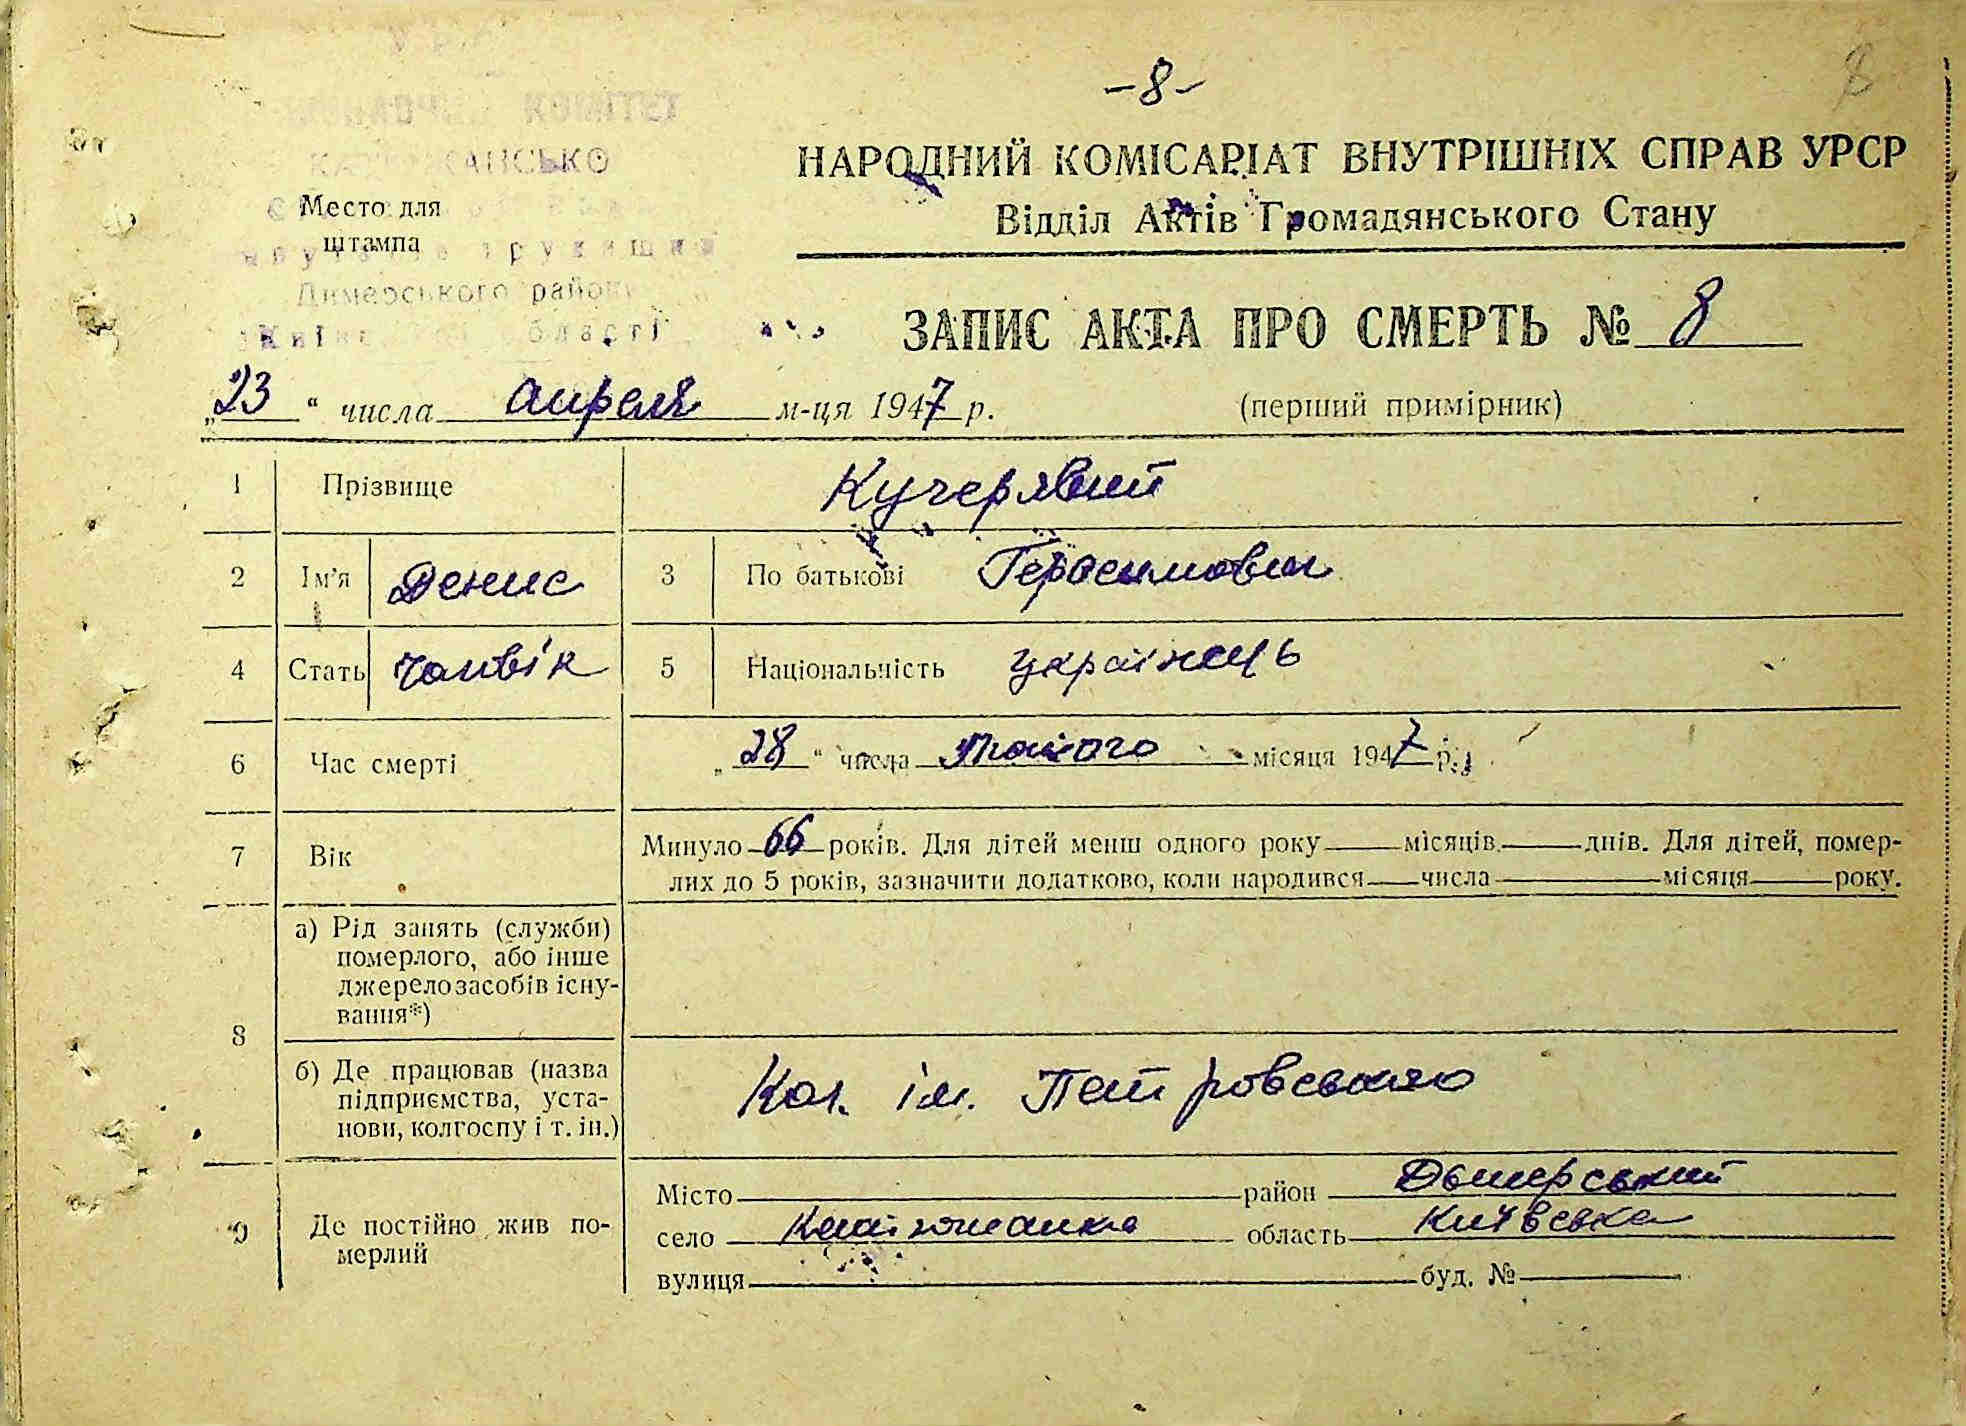 -8-
8
КОМІТЕТ
НАРОДНИЙ КОМІСАРІАТ ВНУТРІШНІХ СПРАВ УРСР
Место для
штампа
Відділ Актів Громадянського Стану
Димерського району
області
ЗАПИС АКТА ПРО СМЕРТЬ № 8
„23“ числа апреля м-ця 1947 р. (перший примірник)
1 Прізвище Кучерявий
2 Ім'я Денис 3 По батькові Герасимович
4 Стать чоловік 5 Національність українець
6 Час смерті „28“ числа місяця 1947 р.
7 Вік Минуло 66 років. Для дітей менш одного року місяців. днів. Для дітей, помер-
лих до 5 років, зазначити додатково, коли народився числа місяця року.
8 а) Рід занять (служби)
померлого, або інше
джерело засобів існу-
вання*)
б) Де працював (назва
підприємства, уста-
нови, колгоспу і т. ін.)
Кол. ім. Петровського
9 Де постійно жив по-
мерлий
Місто район Димерський
село область Київська
вулиця буд. №